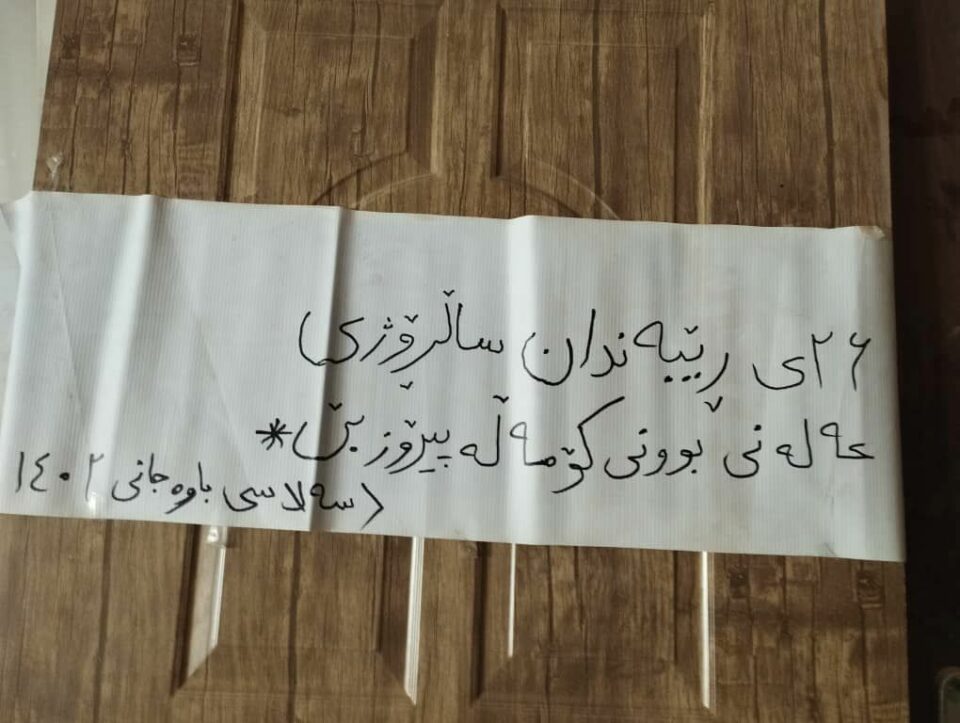 ٢٦ی رێبەندان ساڵڕۆژی
عەلەنی بوونی کۆمەڵە پیرۆز بێ*
(سەلاسی باوەجانی ١٤٠٢